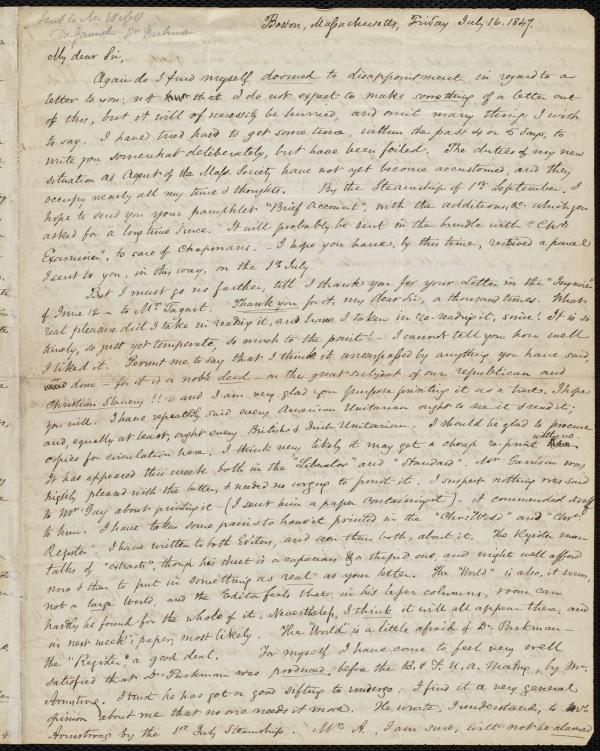 Sent to Mr Webb
Dr Parkman
Boston, Massachusetts, Friday July 16, 1847.
My dear Sir,
Again do I find myself doomed to disappointment in regard to a
letter to you; not that I do not expect to make something of a letter out
of this, but it will of necessity be hurried, and omit many things I wish
to say. I have tried hard to get some time, within the past 4 or 5 days, to
write you somewhat deliberately, but have been foiled. The duties of my new
situation as Agent of the Mass. Society have not yet become accustomed, and they
occupy nearly all my time & thoughts. By the Steamship of 1st September, I
hope to send you your pamphlet "Brief Account", with the additions, &c. which you
asked for a long time since. It will probably be sent in the bundle with "Chr.
Examiner", to care of Chapmans. - I hope you have, by this time, received a parcel
I sent to you, in this way, on the 1st July.
But I must go no farther, till I thank you for your Letter in the "Inquirer"
of June 12 - to Mr Tagart. Thank you for it, my dear Sir, a thousand times. What
real pleasure did I take in reading it, and have I taken in re-reading it, since! It is so
timely, so just yet temperate, so much to the point! - I cannot tell you how well
I liked it. Permit me to say that I think it unsurpassed by anything you have said
done - for it is a noble deed - on the great subject of our republican and
Christian Slavery!! and I am very glad you purpose printing it as a tract. I hope
you will. I have repeatedly said every American Unitarian ought to see it & read it;
and, equally at least, ought every British & Irish Unitarian. I should be glad to procure
copies for circulation here. I think very likely it may get a cheap re-print with us.
It has appeared this week both in the "Liberator" and "Standard". Mr Garrison was
highly pleased with the letter, & needed no urging to print it. I suspect nothing was said
to Mr Gay about printing it - (I sent him a paper containing it) - it commended itself
to him. I have taken some pains to have it printed in the "Chrn World" and "Chr.
Register". I have written to both Editors, and seen them both, about it. The Register man
talks of "extracts", though his sheet is a capacious & a shaped one, and might well afford
now & then to put in something as real as your letter. The "World" is also, it seems,
not a large World, and the Editor feels that, in his lesser columns, room can
hardly be found for the whole of it. Nevertheless, I think it will all appear there, and
in next week's paper, most likely. The "World" is a little afraid of Dr Parkman -
the "Register", a good deal. For myself I have come to feel very well
satisfied that Dr Parkman was produced, before the B. & F. U. A. Meeting, by Mr
Armstrong. I trust he has got a good sifting to undergo. I find it a very general
opinion about me that no one needs it more. He wrote, I understand, to Mr.
Armstrong by the 1st July Steamship. Mr. A., I am sure, will not be alarmed